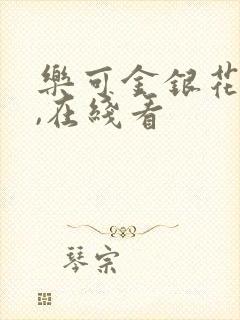 樂可金銀花
,在綫看
琴宗